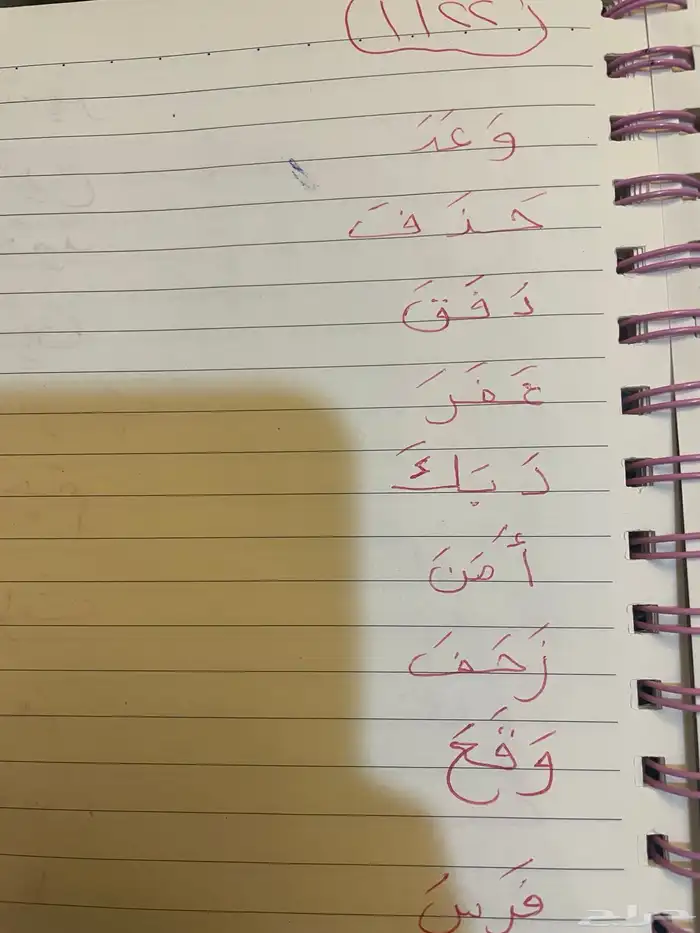 ١١٢٢
وَعَدَ
حَذَفَ
دَفَقَ
غَفَرَ
دَبَكَ
أَمَنَ
زَحَفَ
وَقَعَ
فَرَسَ
حراج